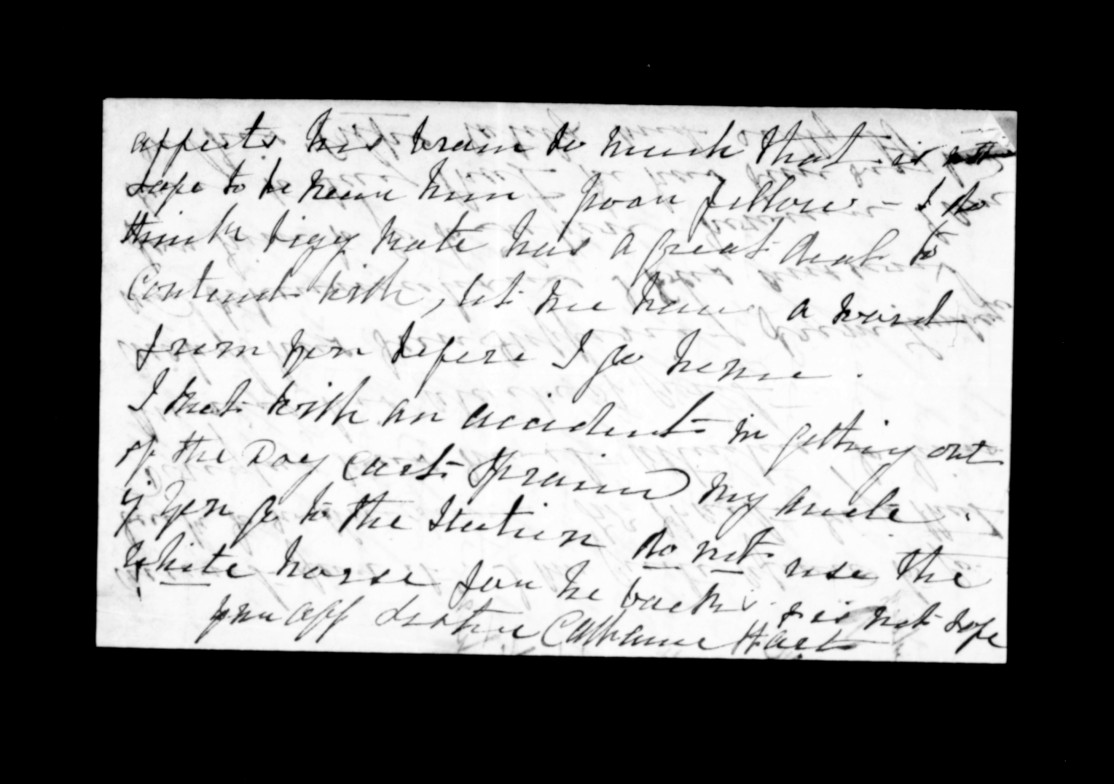 affects his brain so much that is
safe to be near him poor fellow - I do
think bigy Kate has a great deal to
Contend with, let me have a word
from you before I go home.
I met with an accident in getting out
of the Dog Cart Spraind my ancle.
if you go to the Station do not use the
White horse for he backs & is not safe
your aff Sister Catharine Hart